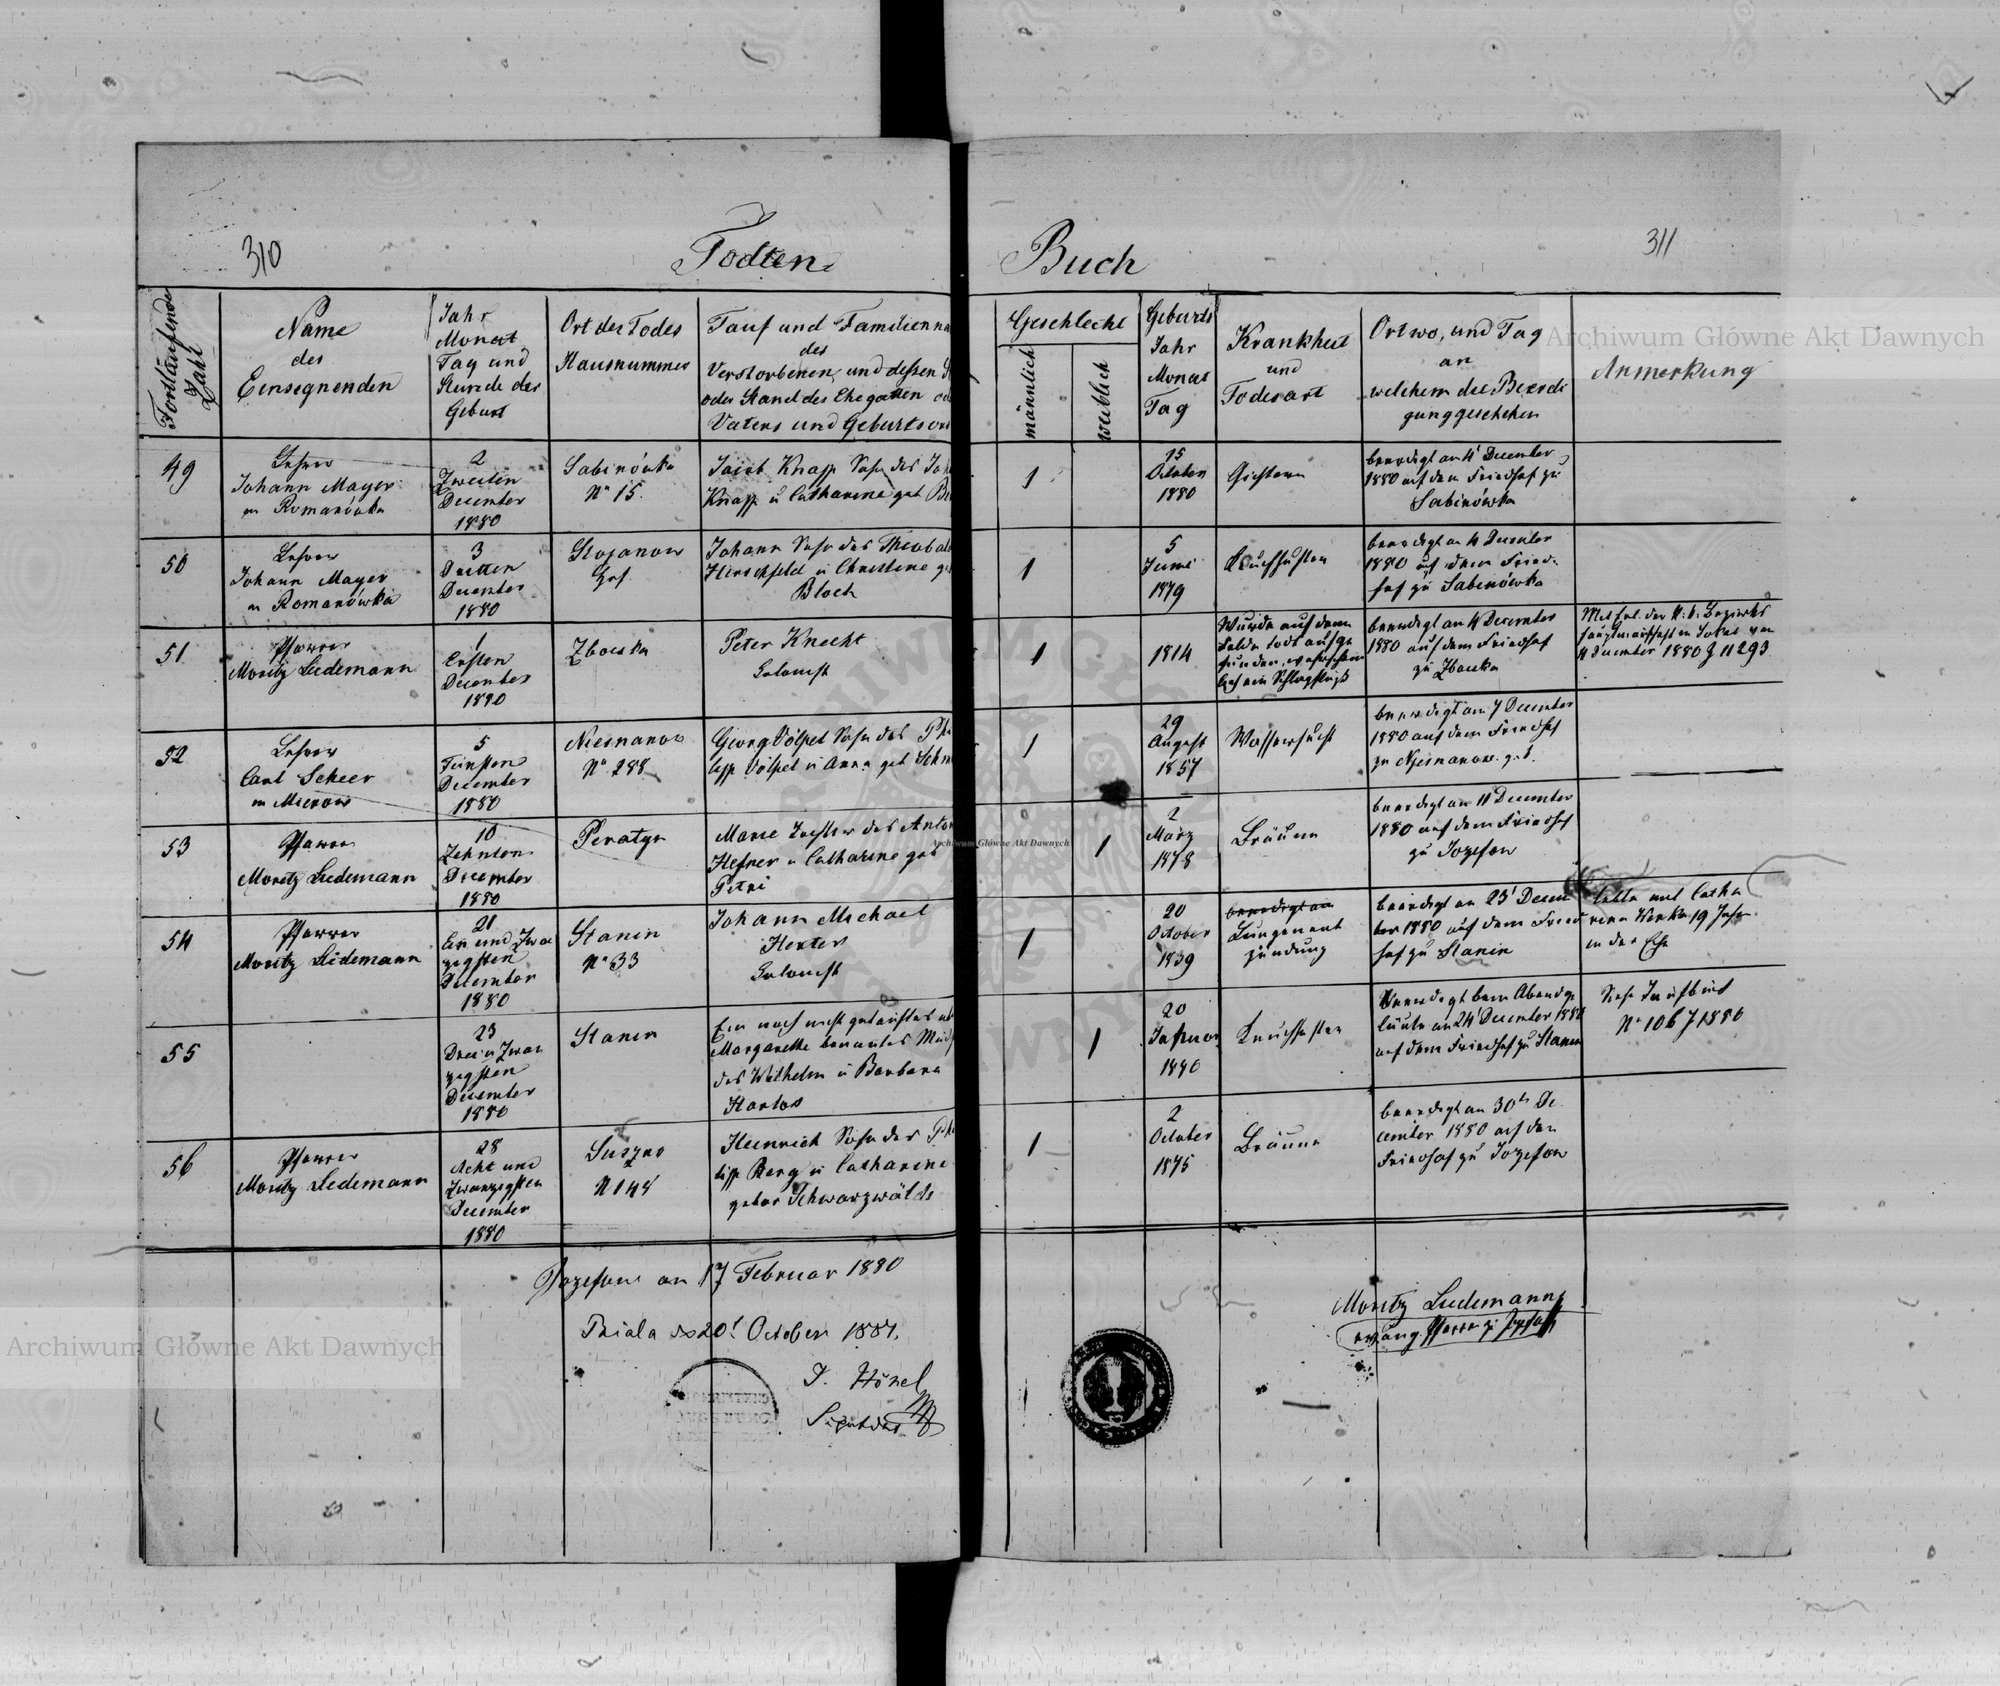 310
Todten
Buch
311
Fortlaufende
Zahl
Name
des
Einsegnenden
Jahr
Monat
Tag und
Stunde der
Geburt
Ort des Todes
Hausnummer
Tauf und Familienna
des
Verstorbenen, und dessen
oder Stand des Ehegatten od
Vaters und Geburtsor
Geschlecht
männlich
weiblich
Geburts
Jahr
Monat
Tag
Krankheit
und
Todesart
Ort wo, und Tag
an
welchem die Beerdi
gung geschehen
Anmerkung
49
Lehrer
Johann Mayer
in Romanówka
2
Zweiten
December
1880
Sabinówka
No 15
Jacob Knapp Sohn des Joh
Knapp u Catharine geb
1
15
October
1880
Gichtern
beerdigt am 4 December
1880 auf dem Friedhof zu
Sabinówka
50
Lehrer
Johann Mayer
in Romanówka
3
Dritten
December
1880
Stojanow
Johann Sohn des Theobal
Hirschfeld u Christine g
Bloch
1
5
Juni
1879
Keuchhusten
beerdigt am 4 December
1880 auf dem Fried-
hof zu Sabinówka
51
Pfarrer
Moritz Ludemann
1
Ersten
December
1880
Zboiska
Peter Knecht
Colonist
1
1814
Wurde auf dem
Felde todt aufge
funden, wahrschein
lich ein Schlagfluß
beerdigt am 4 December
1880 auf dem Friedhof
zu Zboiska
Mit Erl. der K: k: Bezirks
hauptmannschaft in Sokal von
4 December 1880 Z 11293
52
Lehrer
Carl Scheer
in Mierow
5
Fünften
December
1880
Niesnanow
No 288
Georg Völpel Sohn des Phi
lipp Völpel u Anna geb Schm
1
29
August
1857
Wassersucht
beerdigt am 7 December
1880 auf dem Friedhof
zu Niesnanow
53
Pfarrer
Moritz Ludemann
10
Zehnten
December
1880
Peratyn
Marie Tochter des Anton
Hefner u Catharine geb
Petri
1
2
März
1878
Bräune
beerdigt am 11 December
1880 auf dem Friedhof
zu Jozefow
54
Pfarrer
Moritz Ludemann
21
Ein und Zwan
zigsten
December
1880
Stanin
No 33
Johann Michael
Hexter
Colonist
1
20
October
1839
beerdigt am
Lungenent
zündung
beerdigt am 23t Decem
ber 1880 auf dem Fried
hof zu Stanin
lebte mit Catha
rina 19 Jahre
in der Ehe
55
23
Drei u Zwan
zigsten
December
1880
Stanin
Ein noch nicht getauftes
Margarethe benanntes Mäd
des Wilhelm u Barbara
1
20
1880
Keuchhusten
Beerdigt beim Abendge
läute am 24t December 1880
auf dem Friedhof zu Stanin
Siehe Taufbuch
No 106 J 1880
56
Pfarrer
Moritz Ludemann
28
Acht und
Zwanzigsten
December
1880
Suszno
No 148
Heinrich Sohn des Phi
lipp Berg u Catharine
gebor Schwarzwälde
1
2
October
1875
Bräune
beerdigt am 30te De
cember 1880 auf dem
Friedhof zu Jozefow
Jozefow am 17 Februar 1880
Biala den 20t October 1887.
J. Hönel
Moritz Ludemann
evang. Pfarrer zu Jozefow
Archiwum Główne Akt Dawnych
Archiwum Główne Akt Dawnych
Archiwum Główne Akt Dawnych